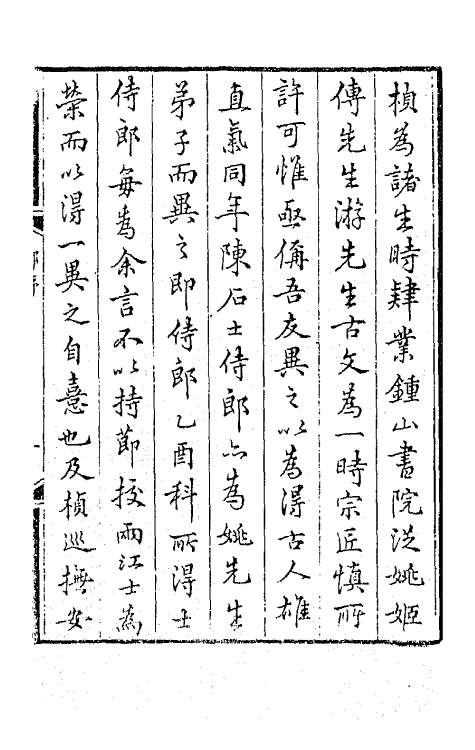 楨為諸生時肄業鍾山書院從姚姬
傳先生游先生古文為一時宗匠慎所
許可惟亟稱吾友異之以為得古人雄
直氣同年陳石士侍郎亦為姚先生
弟子而異之即侍郎乙酉科所得士
侍郎每為余言不以持節校兩江士為
榮而以得一異之自憙也及楨巡撫安